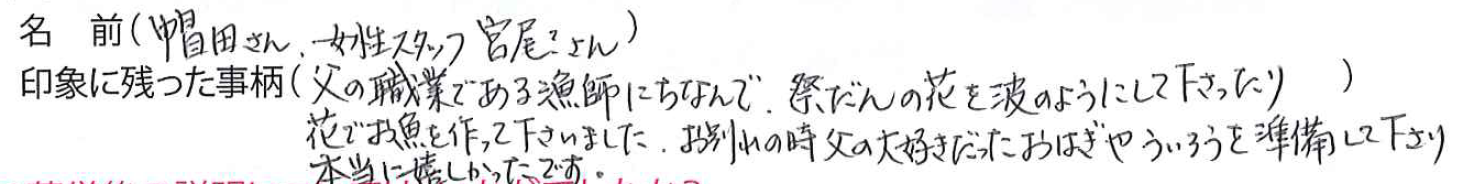 名　前(帽田さん、女性スタッフ宮尾?さん)
印象に残った事柄(父の職業である漁師にちなんで、祭だんの花を波のようにして下さったり　)
花でお魚を作って下さいました。お別れの時父の大好きだったおはぎやういろうを準備して下さり
本当に嬉しかったです。